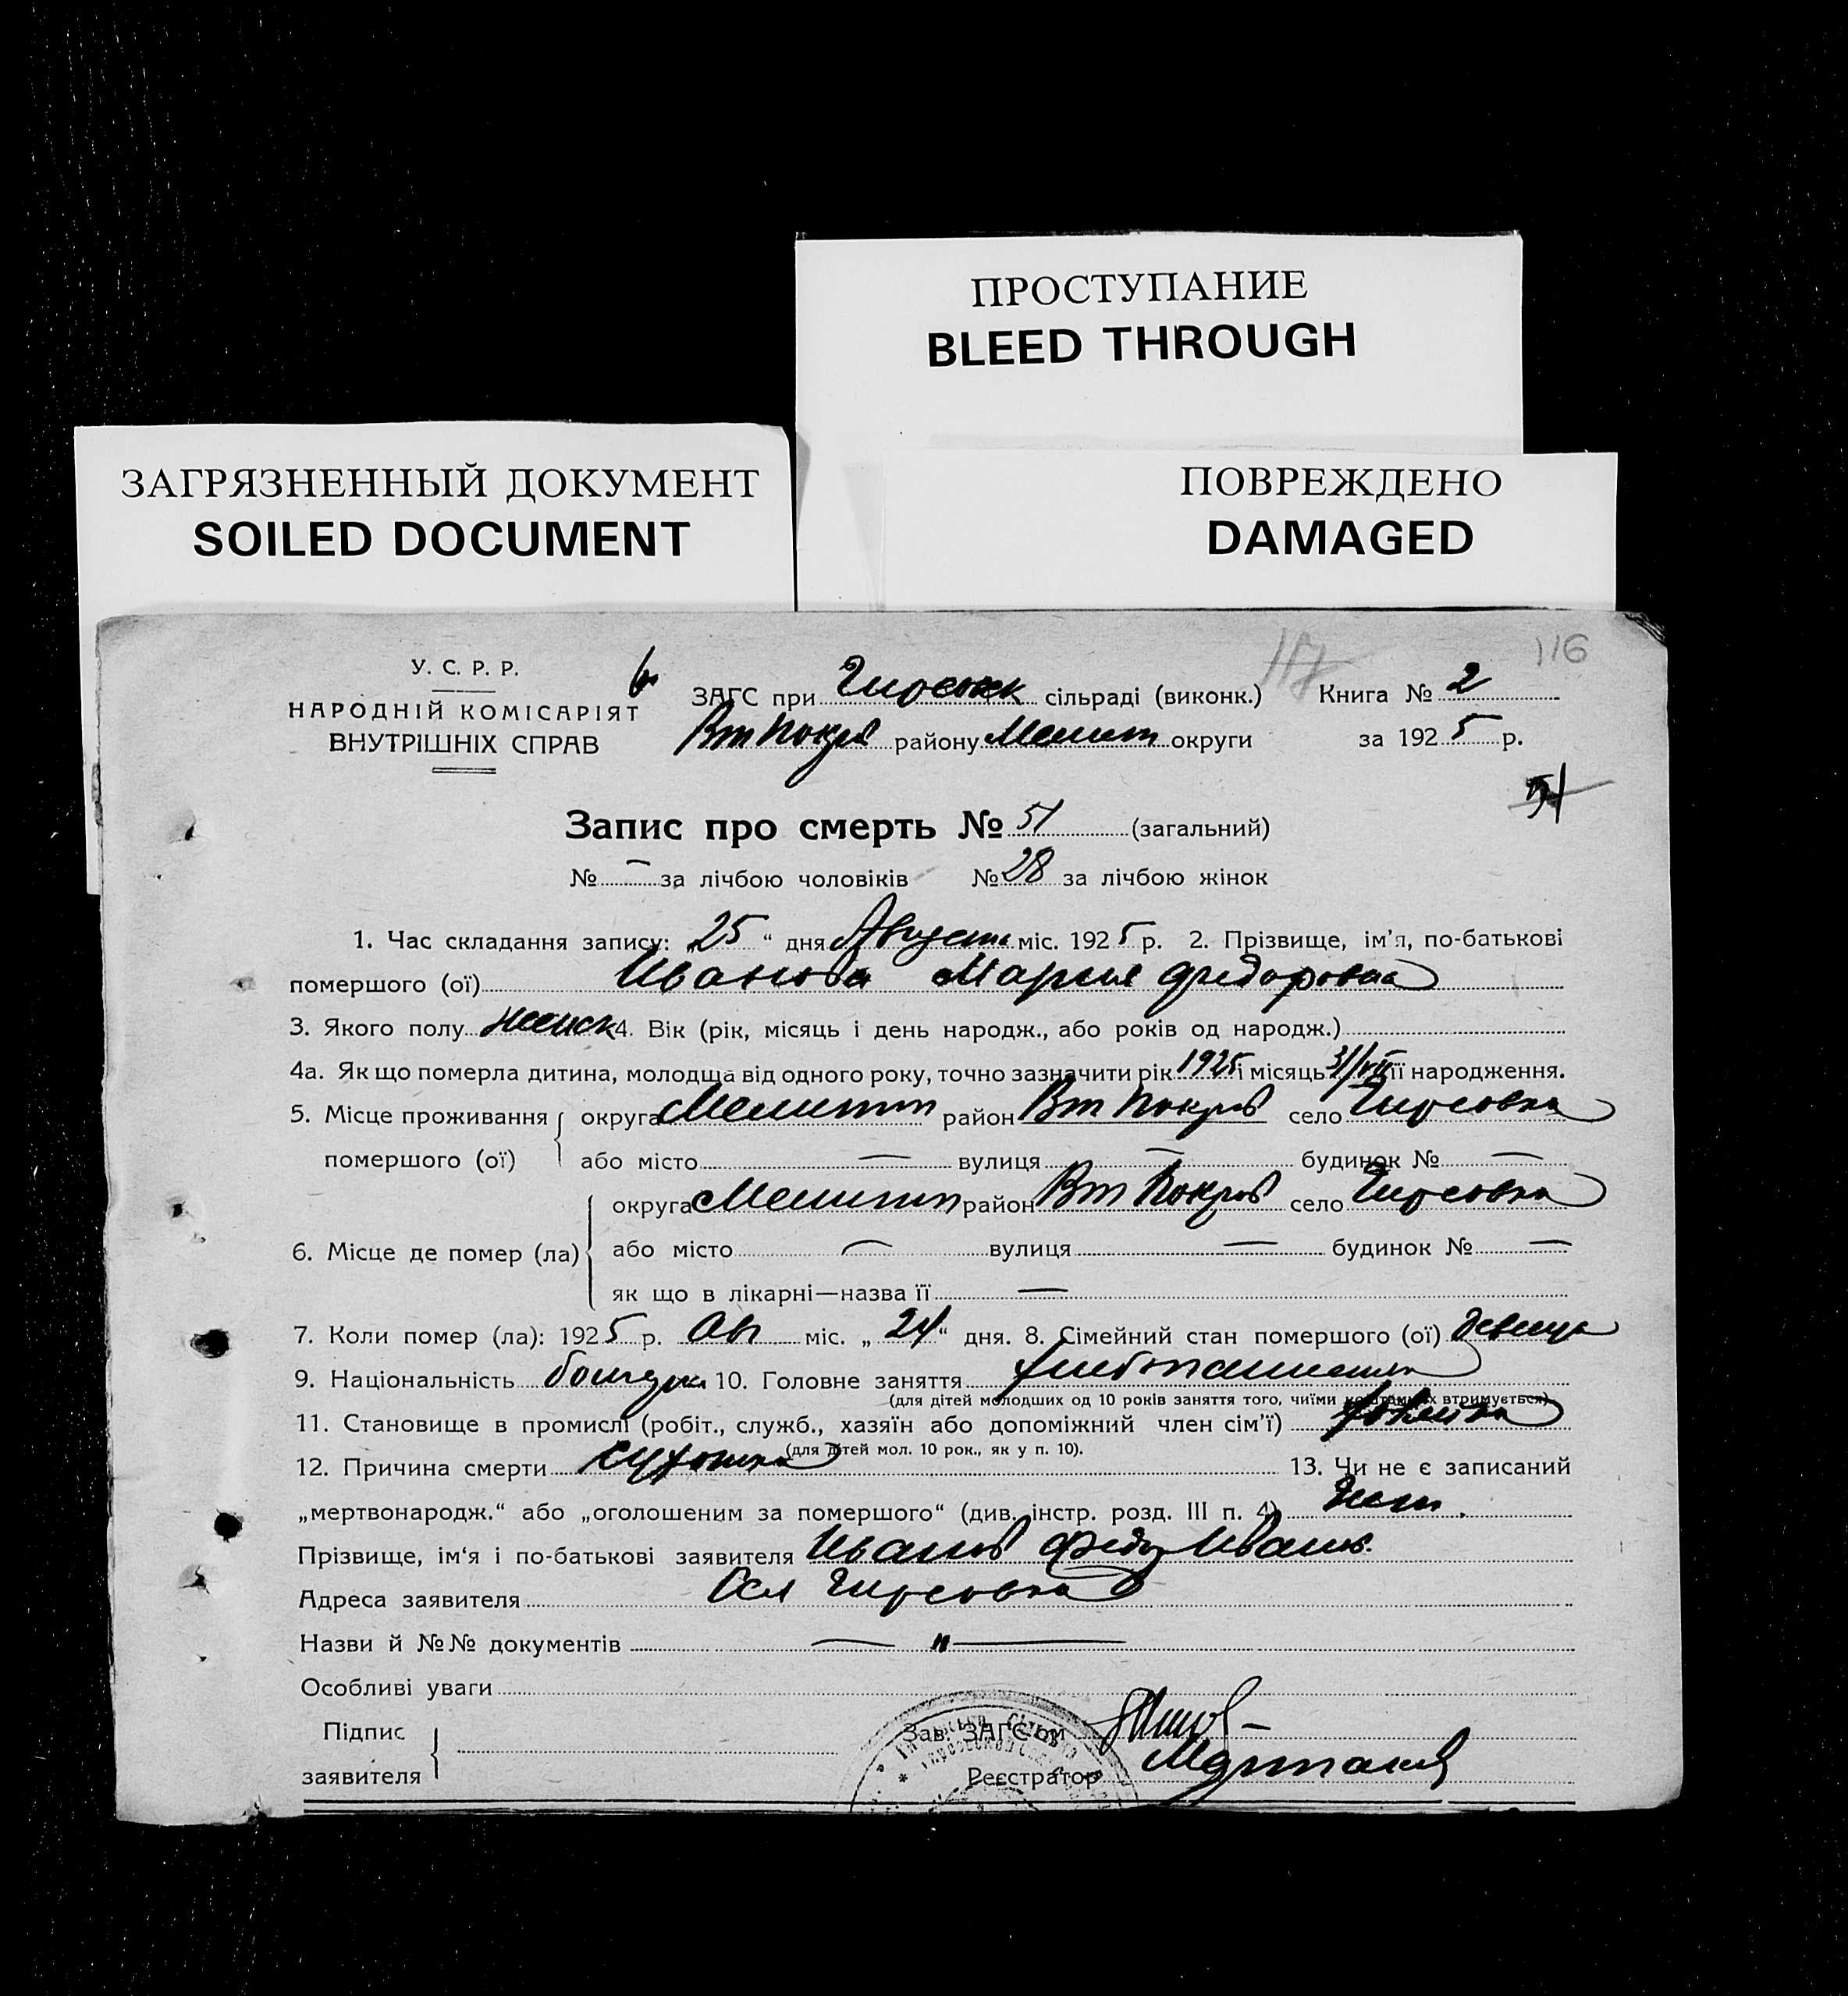 ПРОСТУПАНИЕ
BLEED THROUGH
ЗАГРЯЗНЕННЫЙ ДОКУМЕНТ
SOILED DOCUMENT
ПОВРЕЖДЕНО
DAMAGED
117 116
У. С. Р. Р.
НАРОДНІЙ КОМІСАРІЯТ
ВНУТРІШНІХ СПРАВ
ЗАГС при сільраді (виконк.) Книга № 2
Вт Покров району Мелит округи за 1925 р.
51
Запис про смерть № 51 (загальний)
№ — за лічбою чоловіків № 28 за лічбою жінок
1. Час складання запису: „25“ дня Августа міс. 1925 р. 2. Прізвище, ім'я, по-батькові
помершого (ої) Иванова Мария Федоровна
3. Якого полу женск 4. Вік (рік, місяць і день народж., або років од народж.)
4а. Як що померла дитина, молодща від одного року, точно зазначити рік 1925 і місяць 31/VII її народження.
5. Місце проживання помершого (ої) округа Мелитоп район Вт Покров село Гирсовка
або місто — вулиця — будинок № —
6. Місце де помер (ла) округа Мелитоп район Вт Покров село Гирсовка
або місто — вулиця — будинок № —
як що в лікарні—назва її —
7. Коли помер (ла): 1925 р. Авг міс. „24“ дня. 8. Сімейний стан помершого (ої) девица
9. Національність 10. Головне заняття
(для дітей молодших од 10 років заняття того, чиїми коштами їх втримується)
11. Становище в промислі (робіт., служб., хазяїн або допоміжний член сім'ї)
(для дітей мол. 10 рок., як у п. 10).
12. Причина смерти 13. Чи не є записаний
„мертвонародж.“ або „оголошеним за помершого“ (див. інстр. розд. III п. 4) Нет.
Прізвище, ім'я і по-батькові заявителя Иванов Федор Иванов.
Адреса заявителя Сел Гирсовка
Назви й №№ документів — " —
Особливі уваги
Підпис заявителя
Зав. ЗАГС'ом
Реєстратор